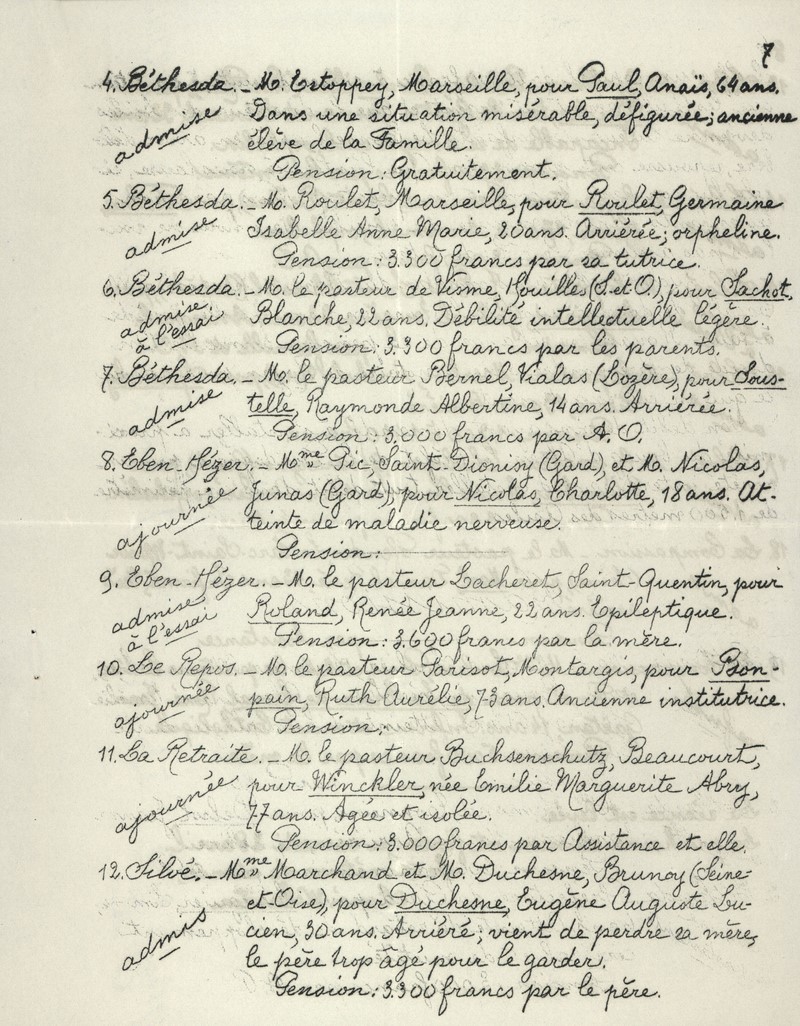 7
4. Béthesda. - M. Estoppey, Marseille, pour Paul, Anaïs, 64 ans.
admise
Dans une situation misérable, défigurée; ancienne
élève de la Famille.
Pension: Gratuitement.
5. Béthesda. - M. Roulet, Marseille, pour Roulet, Germaine
admise
Isabelle Anne Marie, 20 ans. Arriérée; orpheline.
Pension: 3.300 francs par sa tutrice.
6. Béthesda. - M. le pasteur de Visme, Houilles (S. et O.) pour Sachot,
admise
à l'essai
Blanche, 22 ans. Débilité intellectuelle légère.
Pension: 3.300 francs par les parents.
7. Béthesda. - M. le pasteur Bernel, Vialas (Lozère), pour Sous-
admise
telle, Raymonde Albertine, 14 ans. Arriérée.
Pension: 3.000 francs par A.O.
8. Eben-Hézer. - Mme Pic, Saint-Dionisy (Gard), et M. Nicolas,
ajournée
Junas (Gard), pour Nicolas, Charlotte, 18 ans. At-
teinte de maladie nerveuse.
Pension:
9. Eben-Hézer. - M. le pasteur Lacheret, Saint-Quentin, pour
admise
à l'essai
Roland, Renée Jeanne, 22 ans. Epileptique.
Pension: 3.600 francs par la mère.
10. Le Repos. - M. le pasteur Parisot, Montargis, pour Bon-
ajournée
pain, Ruth Aurélie, 73 ans. Ancienne institutrice.
Pension:
11. La Retraite. - M. le pasteur Buchsenschutz, Beaucourt,
ajournée
pour Winckler, née Emilie Marguerite Abry,
77 ans. Agée et isolée.
Pension: 3.000 francs par Assistance et elle.
12. Siloé. - Mme Marchand et M. Duchesne, Brunoy (Seine-
admis
et-Oise), pour Duchesne, Eugène Auguste Lu-
cien, 30 ans. Arriéré; vient de perdre sa mère,
le père trop âgé pour le garder.
Pension: 3.300 francs par le père.